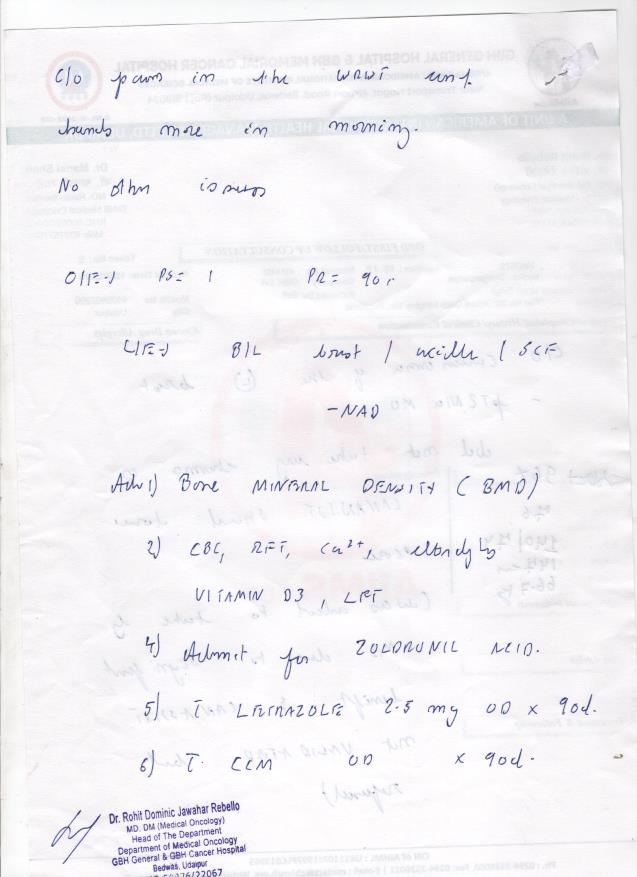 C/O pain in the WRWT and
hands more in morning.
No other issues
O/E→ PS= 1 PR= 90
L/E→ B/L breast / axilla / SCF
-NAD
Adv 1) Bone MINERAL DENSITY (BMD)
2) CBC, RFT, Ca2+, electrolytes
VITAMIN D3, LFT
4) Admit for ZOLDRONIC ACID.
5) T LETRAZOLE 2.5 mg OD x 90d.
6) T. CCM OD x 90d.
Dr. Rohit Dominic Jawahar Rebello
MD, DM (Medical Oncology)
Head of The Department
Department of Medical Oncology
GBH General & GBH Cancer Hospital
Bedwas, Udaipur